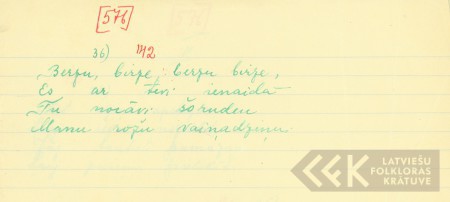 [576]
36) 42
Berzu, birze, berzu birze,
Es ar tevi ienaidā
Tu nocāvi šoruden
Manu rožu vaiņadziņu.
LATVIEŠU
FOLKLORAS
KRĀTUVE